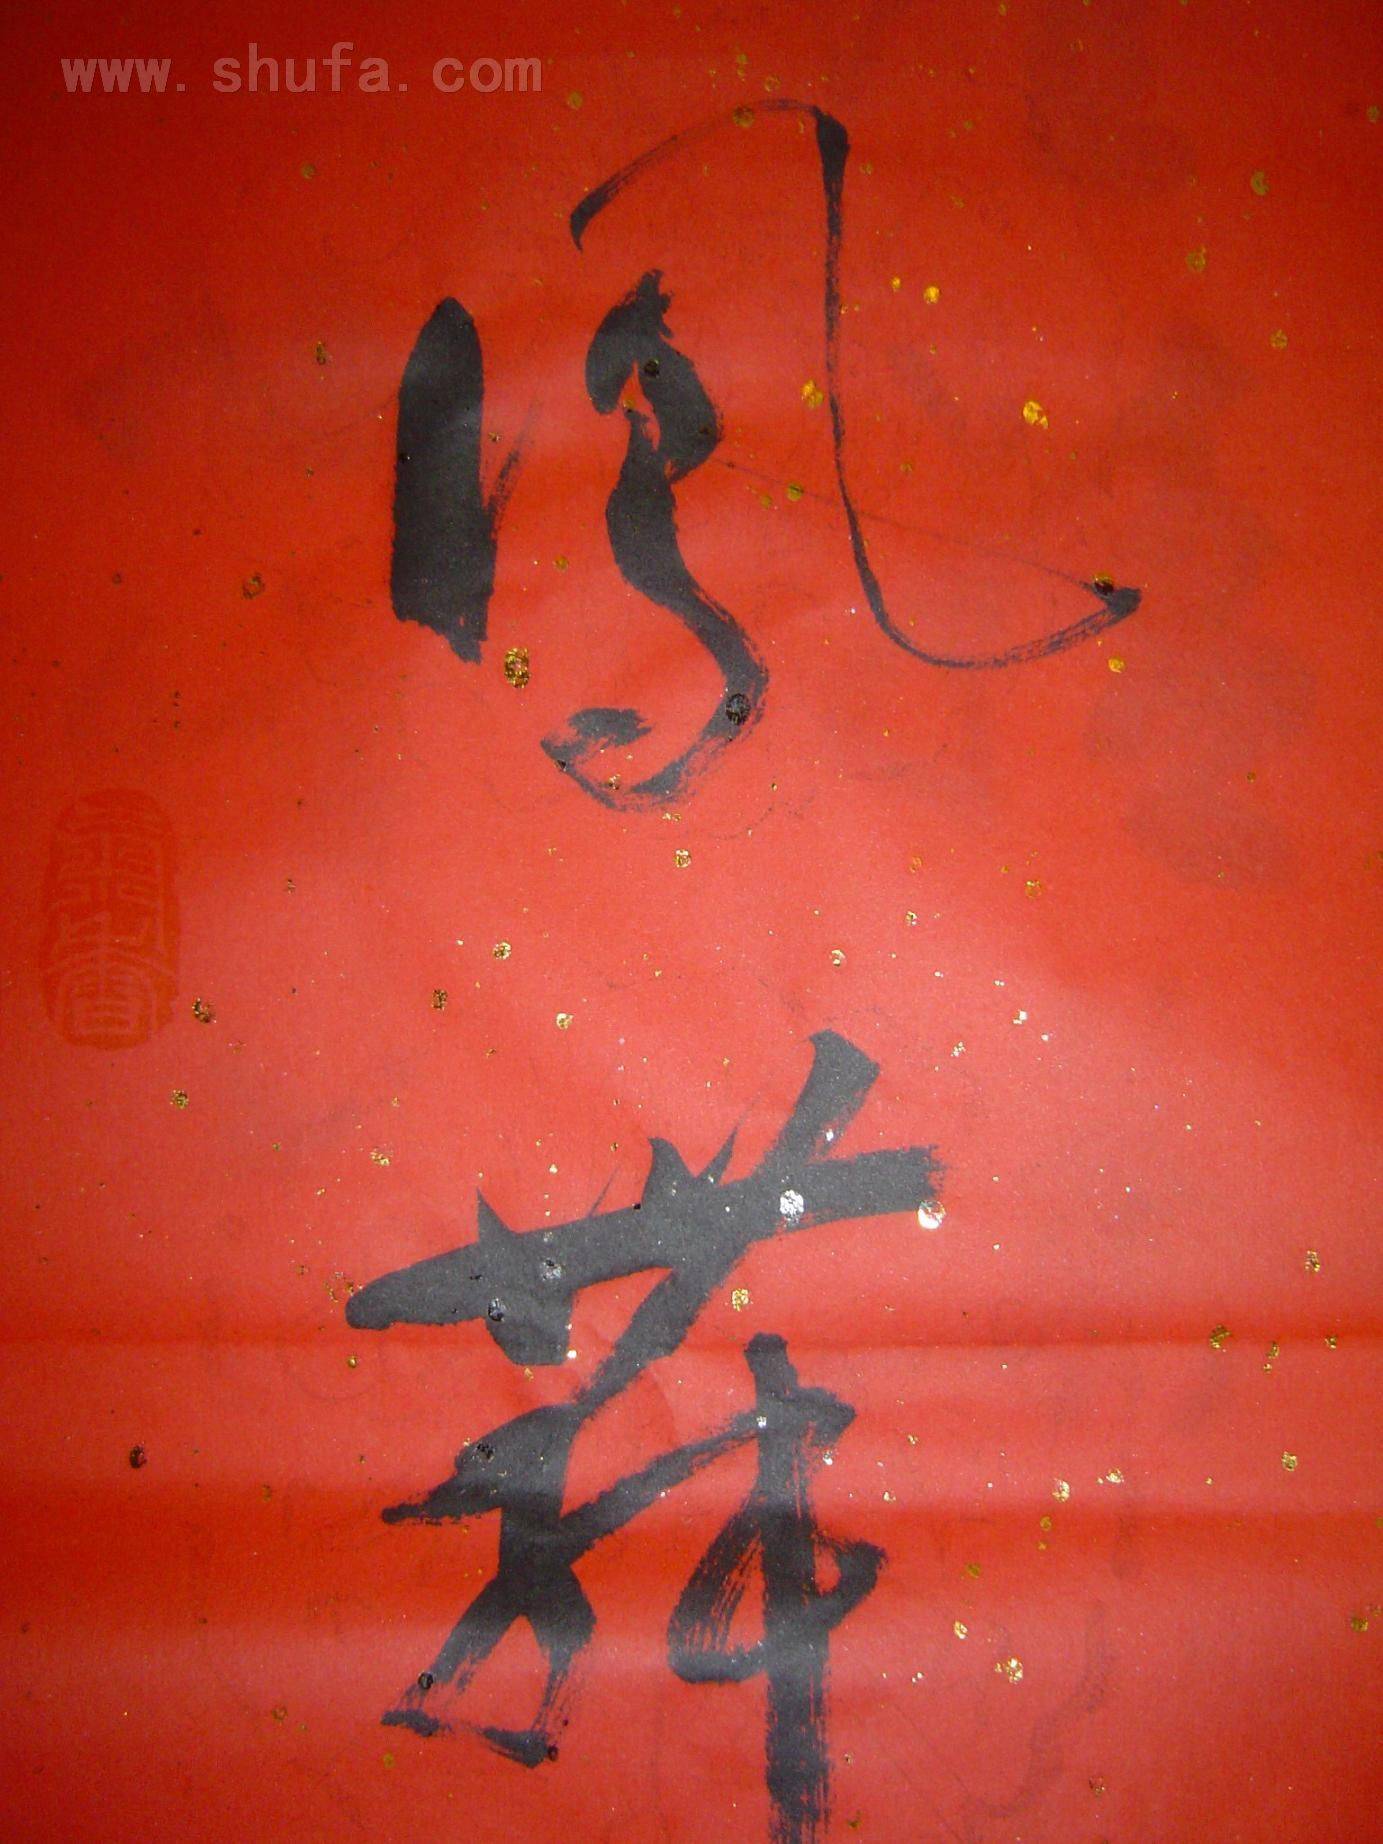 www.shufa.com
鳳
舞